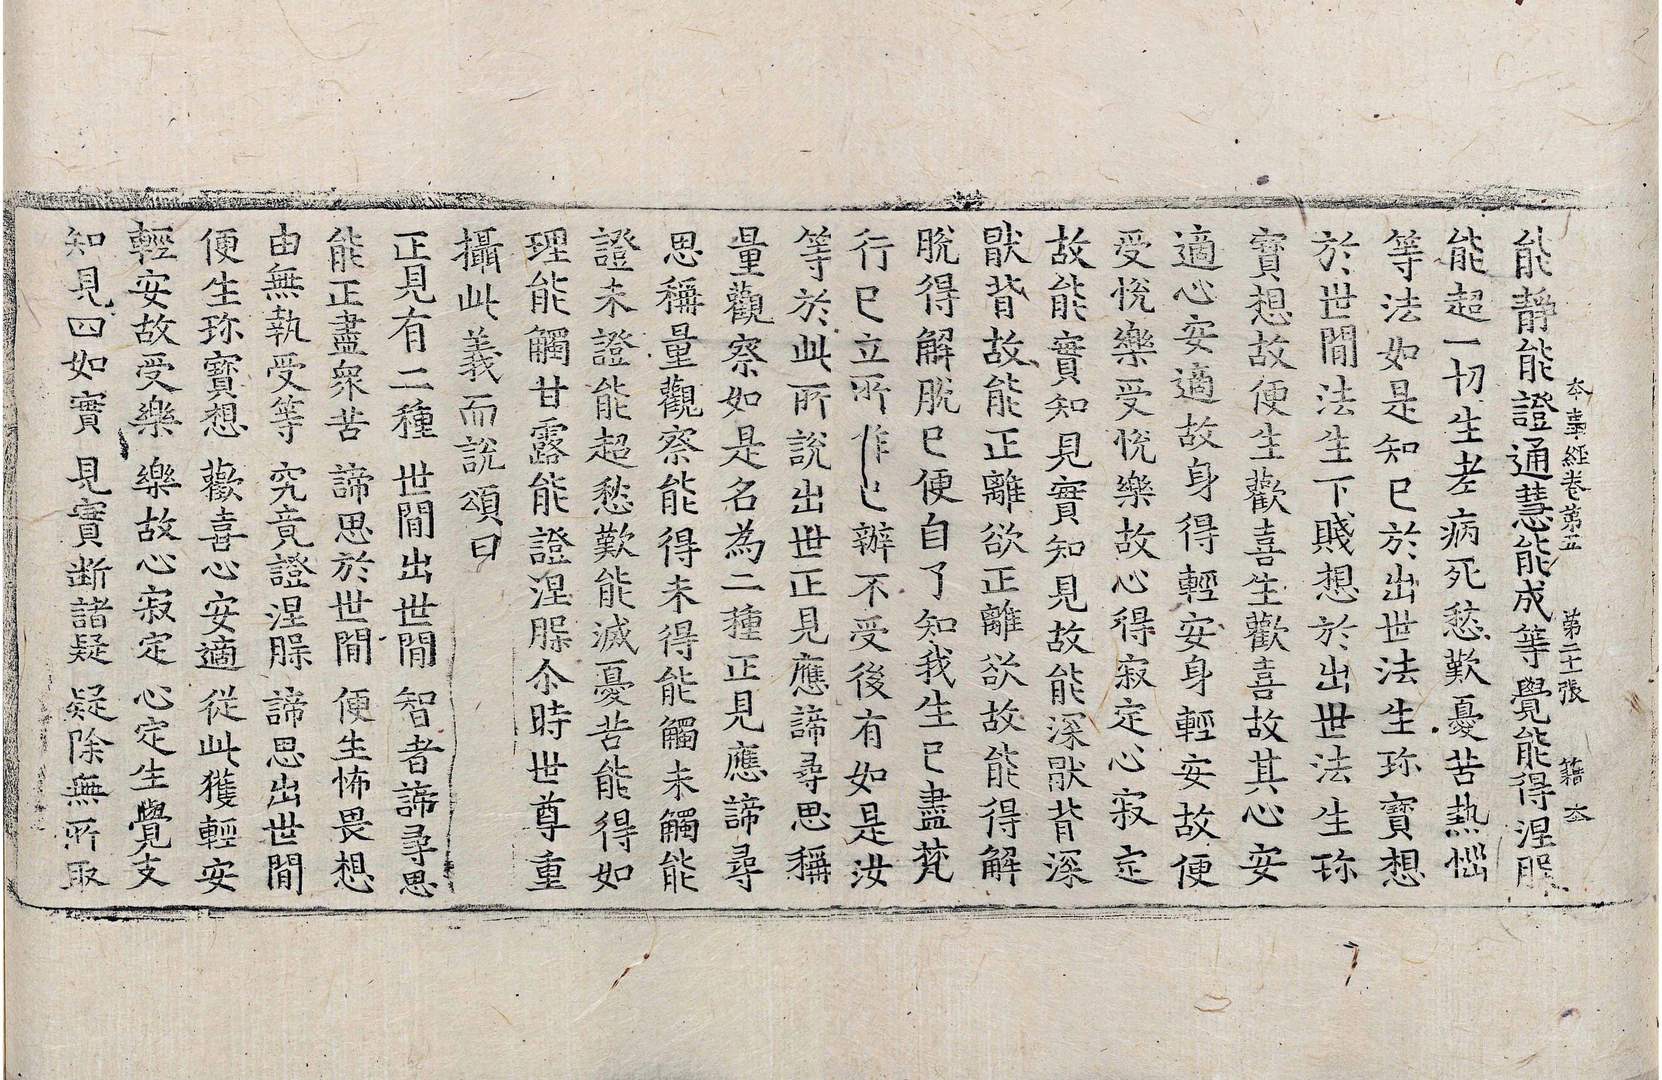 本事經卷第五　第二十張　籍　夲
能靜能證通慧能成等覺能得涅槃
能超一切生老病死愁歎憂苦熱惱
等法如是知已於出世法生珎寶想
於世間法生下賤想於出世法生珎
寶想故便生歡喜生歡喜故其心安
適心安適故身得輕安身輕安故便
受悅樂受悅樂故心得寂定心寂定
故能實知見實知見故能深猒背深
猒背故能正離欲正離欲故能得解
脫得解脫已便自了知我生已盡梵
行已立所作已辦不受後有如是汝
等於此所說出世正見應諦尋思稱
量觀察如是名為二種正見應諦尋
思稱量觀察能得未得能觸未觸能
證未證能超愁歎能滅憂苦能得如
理能觸甘露能證涅槃尒時世尊重
攝此義而說頌曰
正見有二種　世間出世間　智者諦尋思
能正盡衆苦　諦思於世間　便生怖畏想
由無執受等　究竟證涅槃　諦思出世間
便生珎寶想　歡喜心安適　從此獲輕安
輕安故受樂　樂故心寂定　心定生覺支
知見四如實　見實斷諸疑　疑除無所取